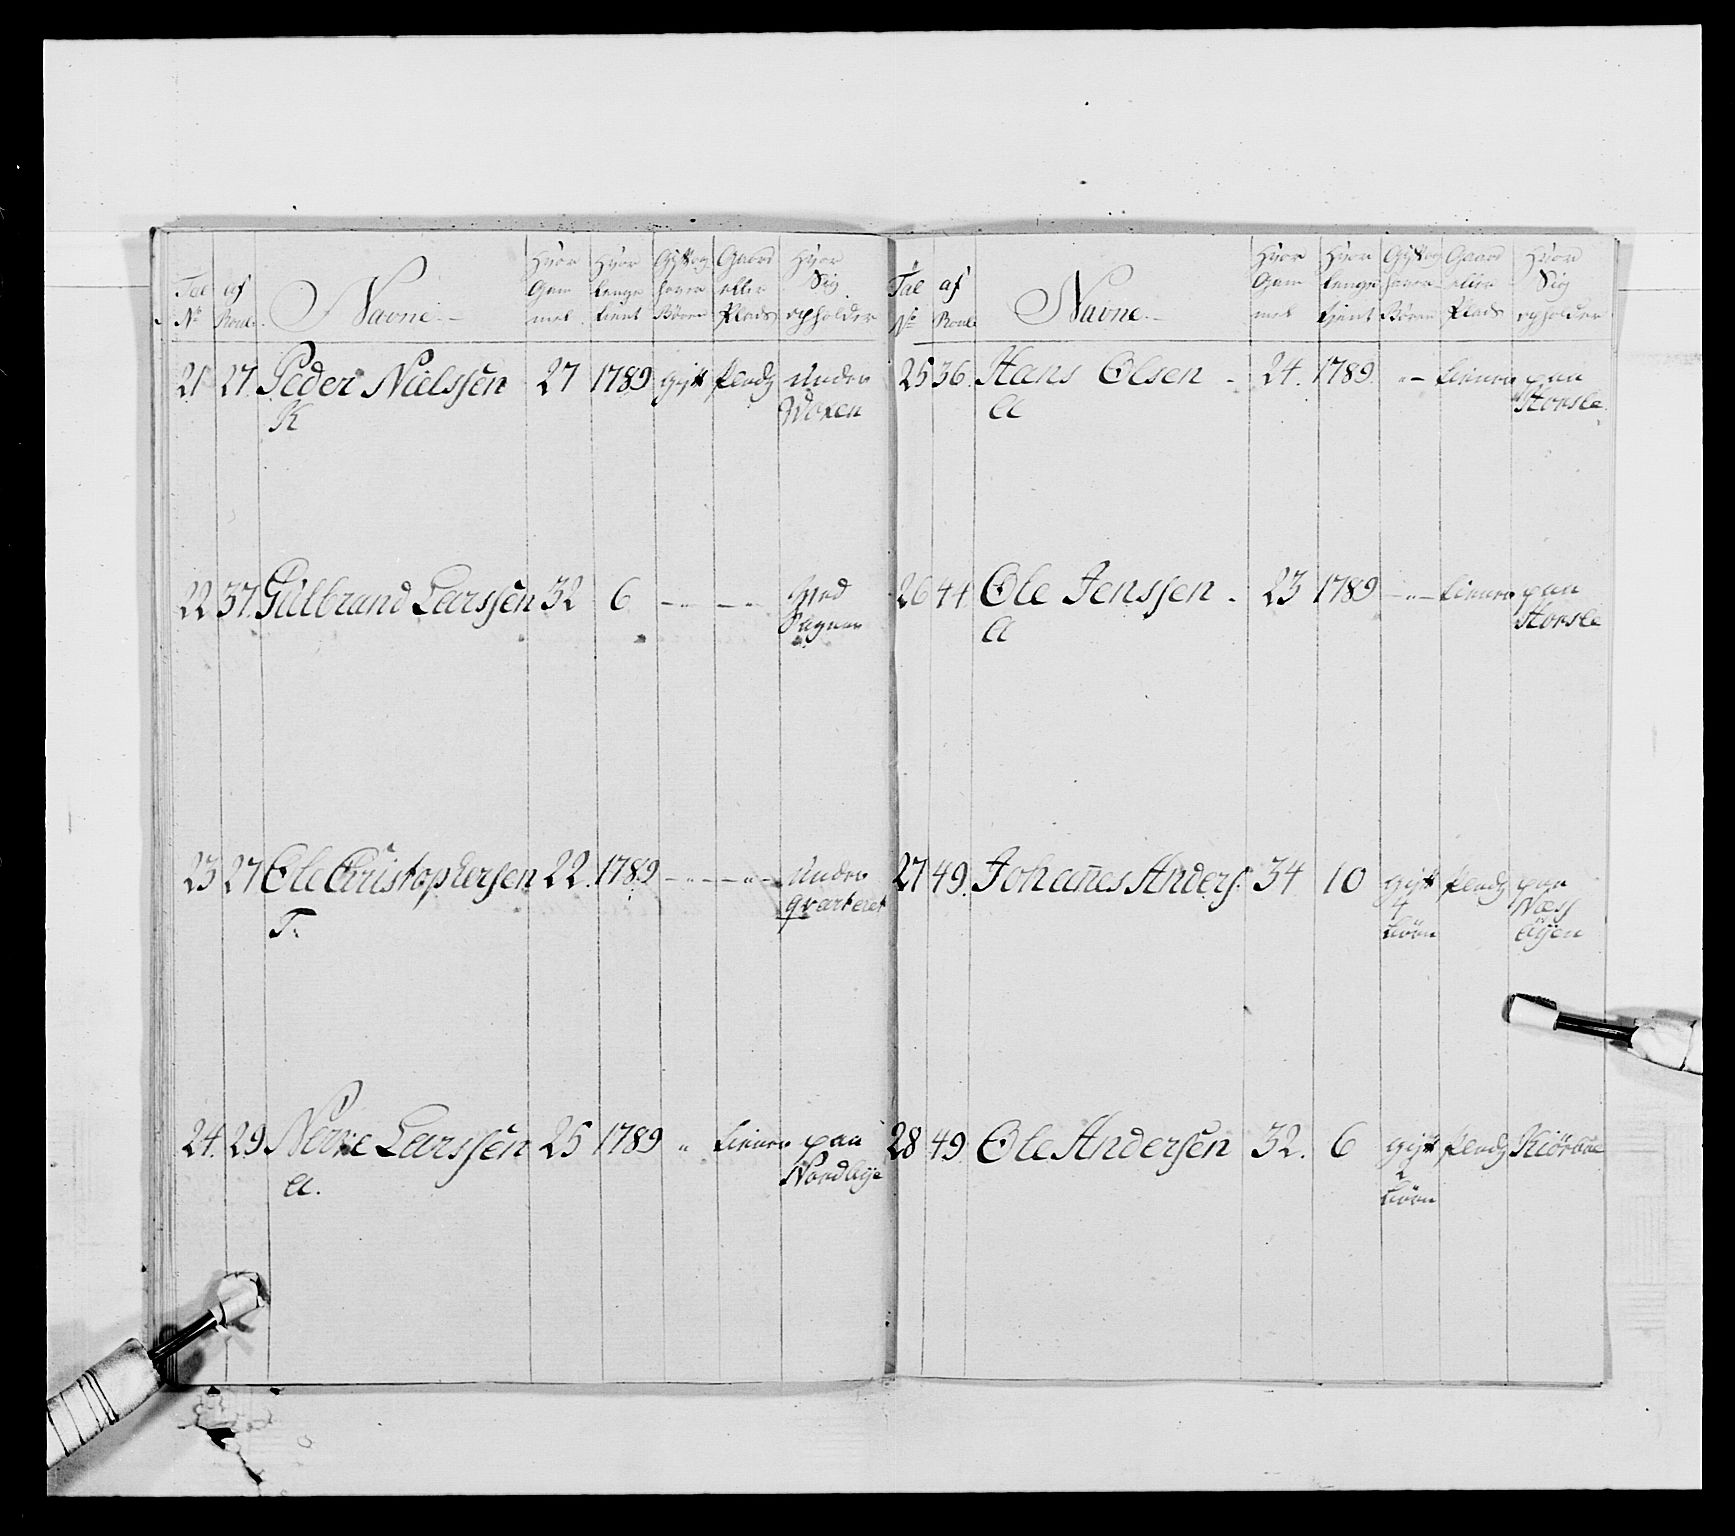 Tal No
af Roul.
Navne
Hvor Gam mel
Hvor lenge tient
Gift og haver Børn
Gaard eller Plads
Hvor Sig opholder
21 27. Peder Nielssen 27 1789 gift Plads under Woxen
K
22 37. Gulbrand Larssen 32 6 - „ - - „ ved Sagene
23 27 Ole Christophersen 22. 1789 - „ - - „ - under qvarteret
T.
24. 29 Larssen 25 1789 „ tiener paa Nordbye
A.
Tal No
af Roul
Navne
Hvor Gam mel
Hvor lenge tient
Gift og haver Børn
Gaard eller Plads
Hvor Sig opholder
25 36. Hans Olsen - 24. 1789. „ - tiener paa Horsle
A
26 44. Ole Jenssen - 23 1789 - „ - tiener paa Horsle
A
27 49. Johan̄es Anders: 34 10 gift 4 børn Plads paa Næss Øyen
28 49. Ole Andersen 32. 6 gift 2 børn Plads Kiørboe